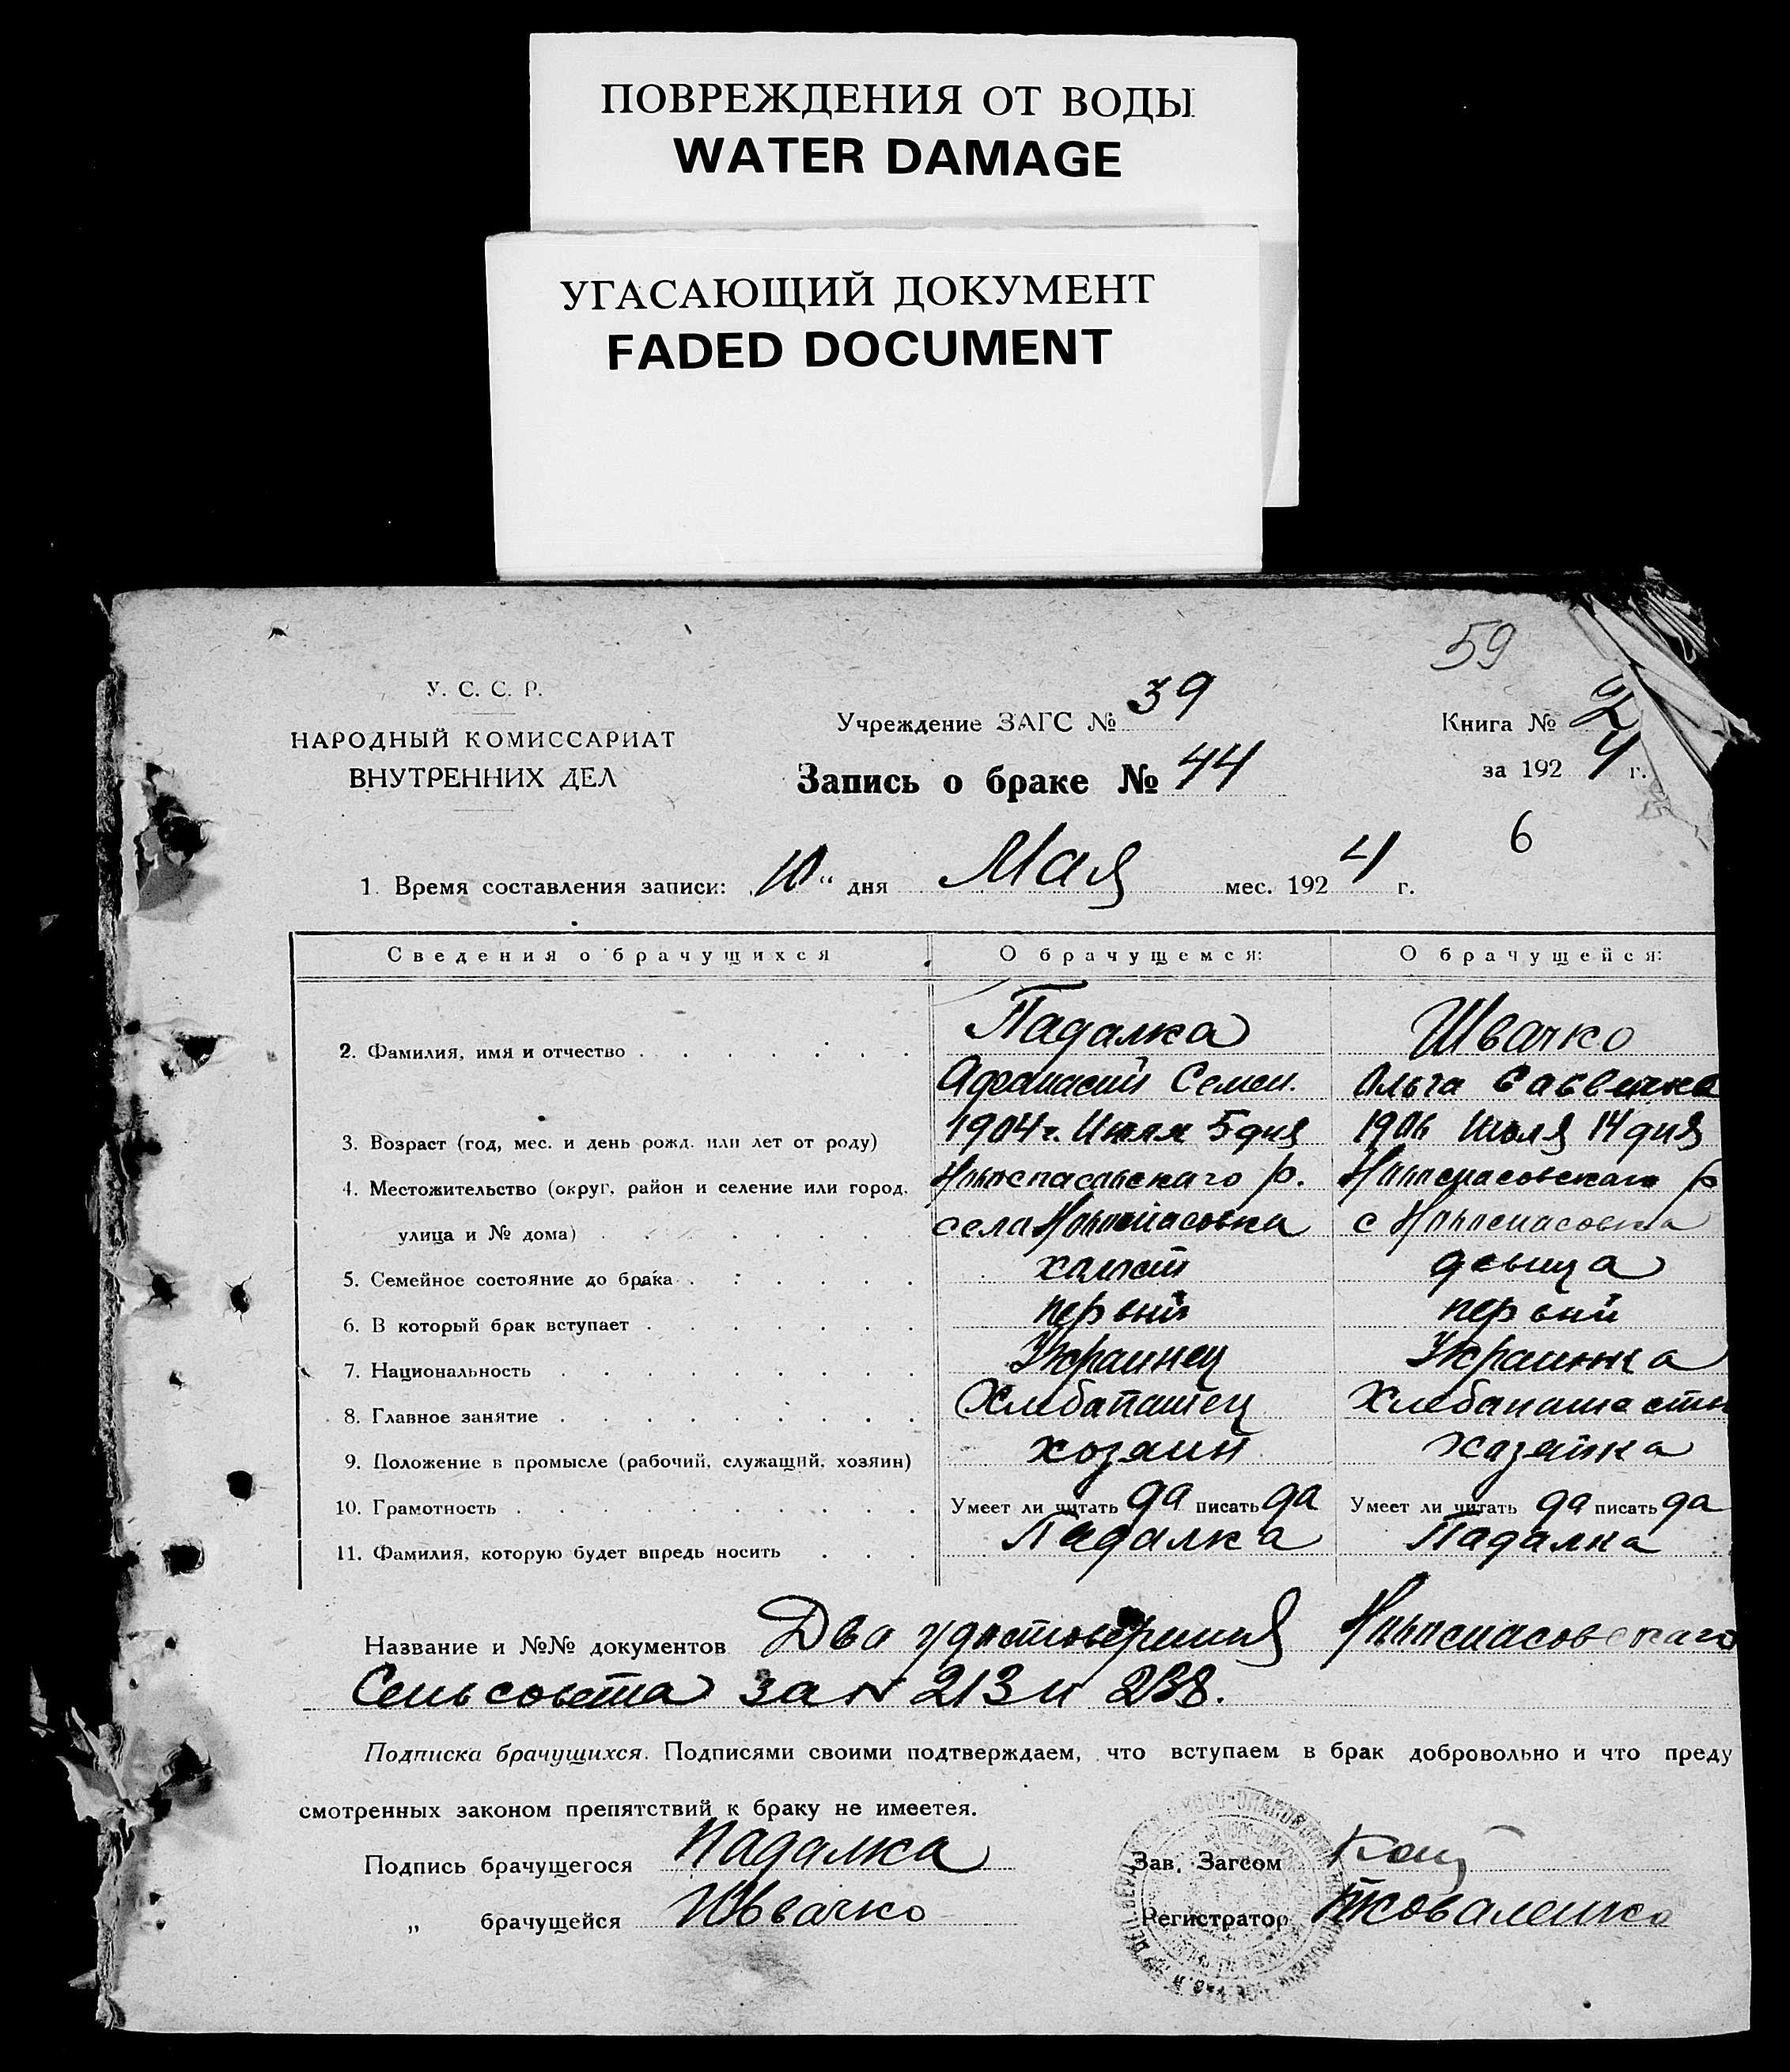 ПОВРЕЖДЕНИЯ ОТ ВОДЫ
WATER DAMAGE
УГАСАЮЩИЙ ДОКУМЕНТ
FADED DOCUMENT
59
У. С. С. Р.
НАРОДНЫЙ КОМИССАРИАТ
ВНУТРЕННИХ ДЕЛ
Учреждение ЗАГС № 39
Запись о браке № 44
Книга № 2
за 192 4 г.
6
1. Время составления записи: 10 " дня Мая мес. 192 4 г.
Сведения о брачущихся О брачущемся: О брачущейся:
2. Фамилия, имя и отчество Падалка Швачко
Афанасий Семен. Ольга Саввична
3. Возраст (год, мес. и день рожд. или лет от роду) 1904 г. 5 дня 1906 Июля 14 дня
4. Местожительство (округ, район и селение или город, Новоспасовскаго р. Новоспасовскаго р
улица и № дома) села Новоспасовка с Новоспасовка
5. Семейное состояние до брака холост девица
6. В который брак вступает первый первый
7. Национальность Украинец Украинка
8. Главное занятие Хлебапашец
9. Положение в промысле (рабочий, служащий, хозяин) хозяин хазяйка
10. Грамотность Умеет ли читать да писать да Умеет ли читать да писать да
11. Фамилия, которую будет впредь носить Падалка Падалка
Название и №№ документов Два удостоверения Новоспасовскаго
Сельсовета за N 213 и 238.
Подписка брачущихся. Подписями своими подтверждаем, что вступаем в брак добровольно и что преду
смотренных законом препятствий к браку не имеетея.
Подпись брачущегося Падалка
Зав. Загсом
„ брачущейся Швачко
Регистратор Коваленко